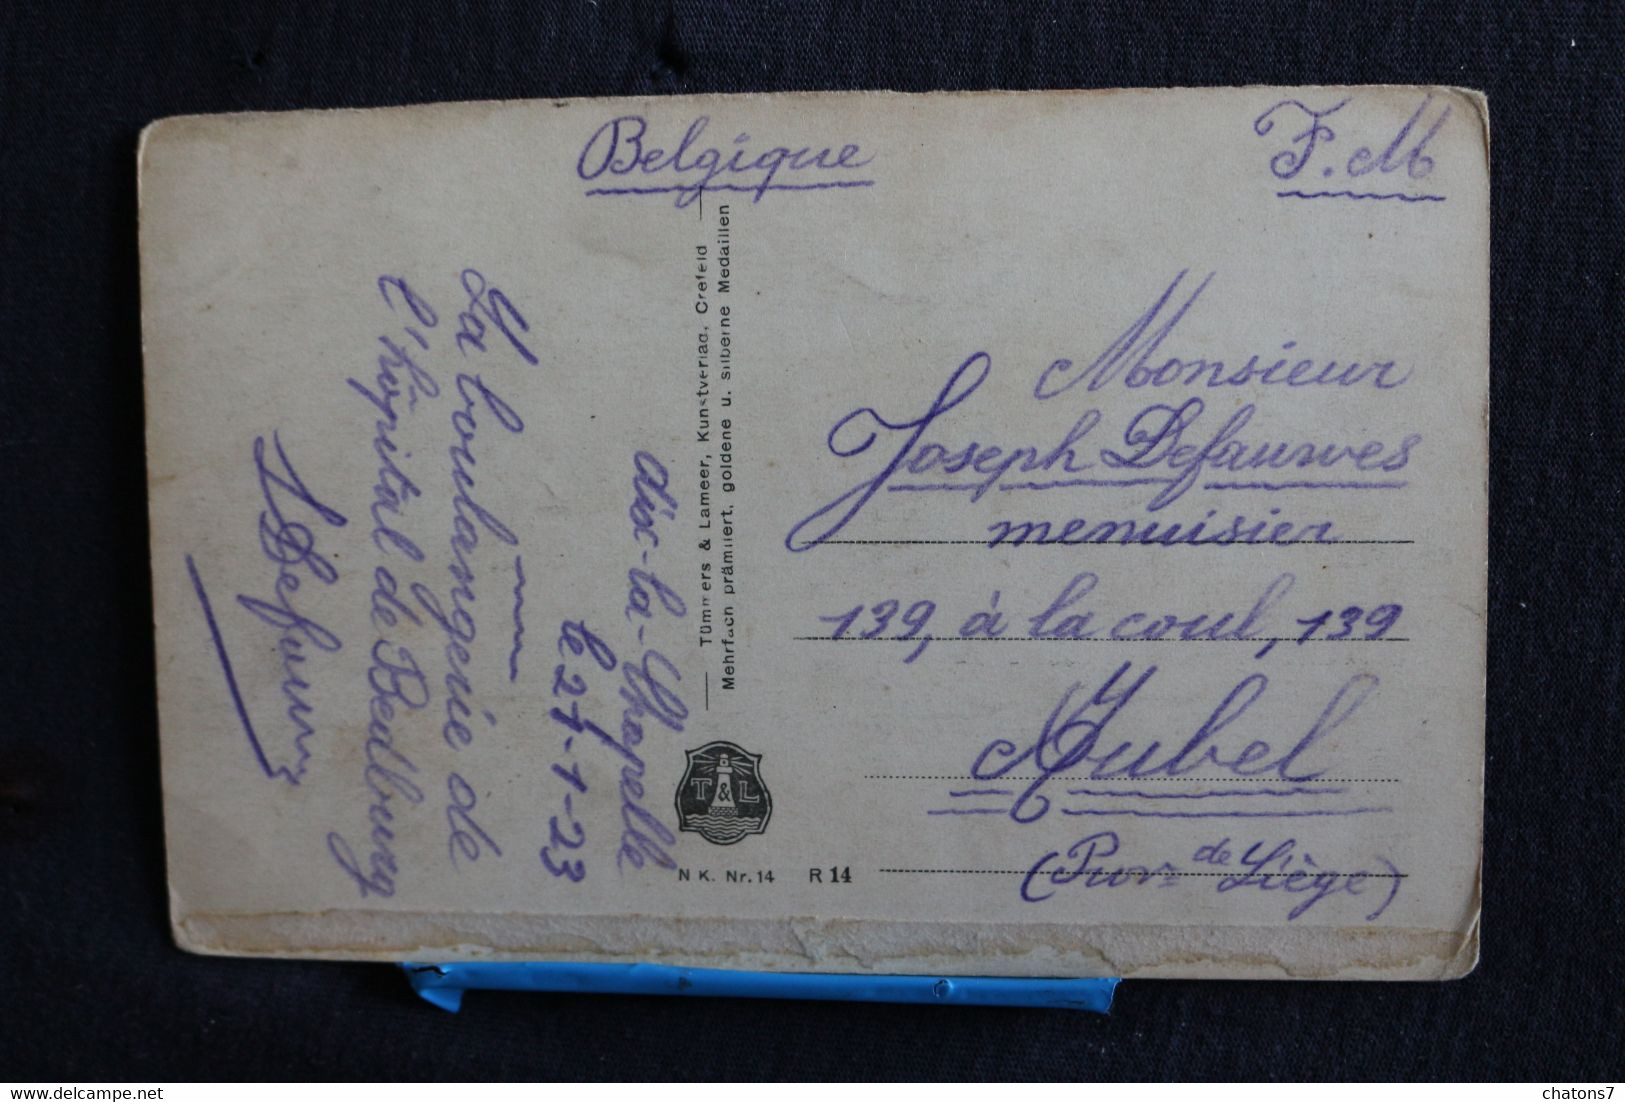 Belgique
F. M
Monsieur
Joseph Defauwes
menuisier
139, à la coul, 139
Aubel
(Prov de Liège)
Aix-la-Chapelle
le 27-1-23
La boulangerie de
l'hôpital de Bedburg
Tümmers & Lameer, Kunstverlag, Crefeld
Mehrfach prämiiert, goldene u. silberne Medaillen
T & L
N K. Nr. 14 R 14
chatons7